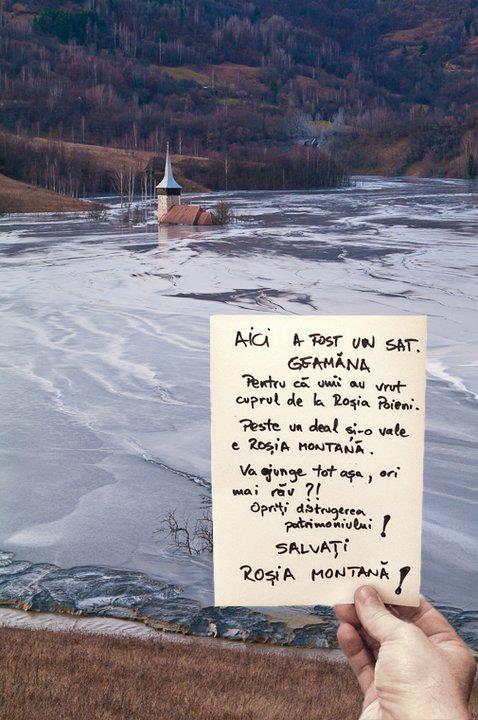 AiCi A FOST UN SAT.
GEAMĂNA
Pentru că unii au vrut
cuprul de la Roşia Poieni.
Peste un deal şi-o vale
e ROŞIA MONTANĂ.
Va ajunge tot aşa, ori
mai rău ?!
Opriţi distrugerea
patrimoniului !
SALVAŢi
ROŞiA MONTANĂ !